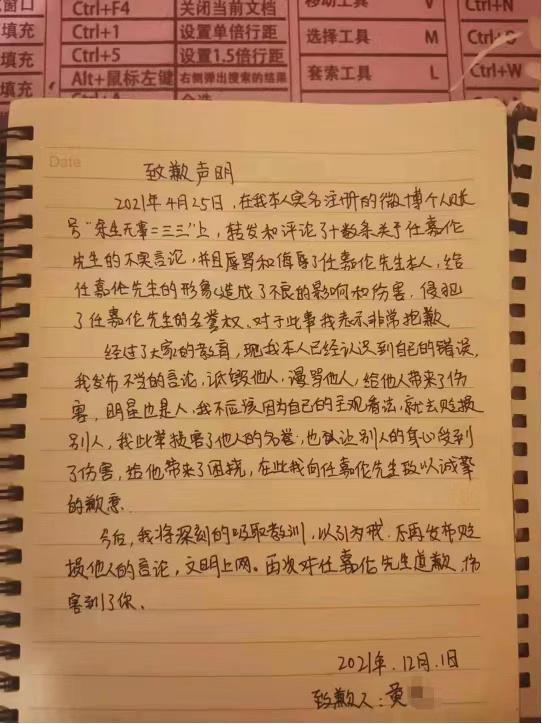 窗口
Ctrl+F4
关闭当前文档
移动工具
V
Ctrl+N
填充
Ctrl+1
设置单倍行距
选择工具
M
填充
Ctrl+5
设置1.5倍行距
套索工具
L
Ctrl+W
填充
Alt+鼠标左键
右侧弹出搜索的结果
Date
致歉声明
2021年4月25日,在我本人实名注册的微博个人账
号“余生无事二三三”上,转发和评论了十数条关于任嘉伦
先生的不实言论,并且辱骂和侮辱了任嘉伦先生本人,给
任嘉伦先生的形象造成了不良的影响和伤害,侵犯
了任嘉伦先生的名誉权、对于此事我表示非常抱歉。
经过了大家的教育,现我本人已经认识到自己的错误,
我发布不当的言论,诋毁他人,谩骂他人,给他人带来了伤
害,明星也是人,我不应该因为自己的主观看法,就去贬损
别人,我此举损害了他人的名誉,也让别人的身心受到
了伤害,给他带来了困扰,在此我向任嘉伦先生致以诚挚
的歉意.
今后,我将深刻的吸取教训,以引为戒.不再发布贬
损他人的言论,文明上网。再次对任嘉伦先生道歉,伤
害到了你、
2021年.12月.1日
致歉人:黄